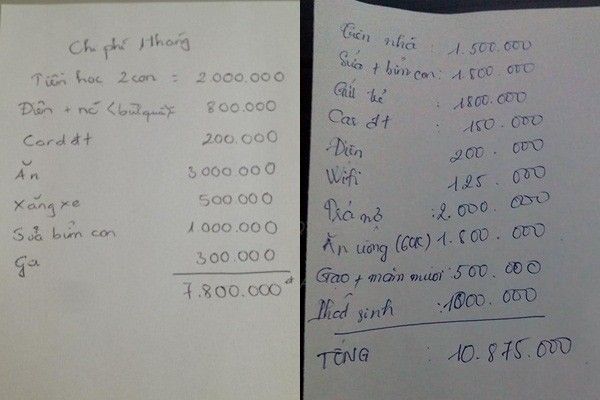 Chi phí 1 tháng
Tiền học 2 con = 2.000.000
Điện + nước 800.000
Card đt 200.000
Ăn 3000.000
Xăng xe 500.000
Sữa bỉm con 1.000.000
Ga 300.000
7.800.000đ
Tiền nhà : 1.500.000
Sữa + bỉm con : 1.800.000
Gửi trẻ : 1800.000
Car đt : 150.000
Điện 200.000
Wifi 125.000
Trả nợ : 2.000.000
Ăn uống (60k) 1.800.000
Gạo + mắm muối : 500.000
Phát sinh : 1000.000
TỔNG : 10.875.000